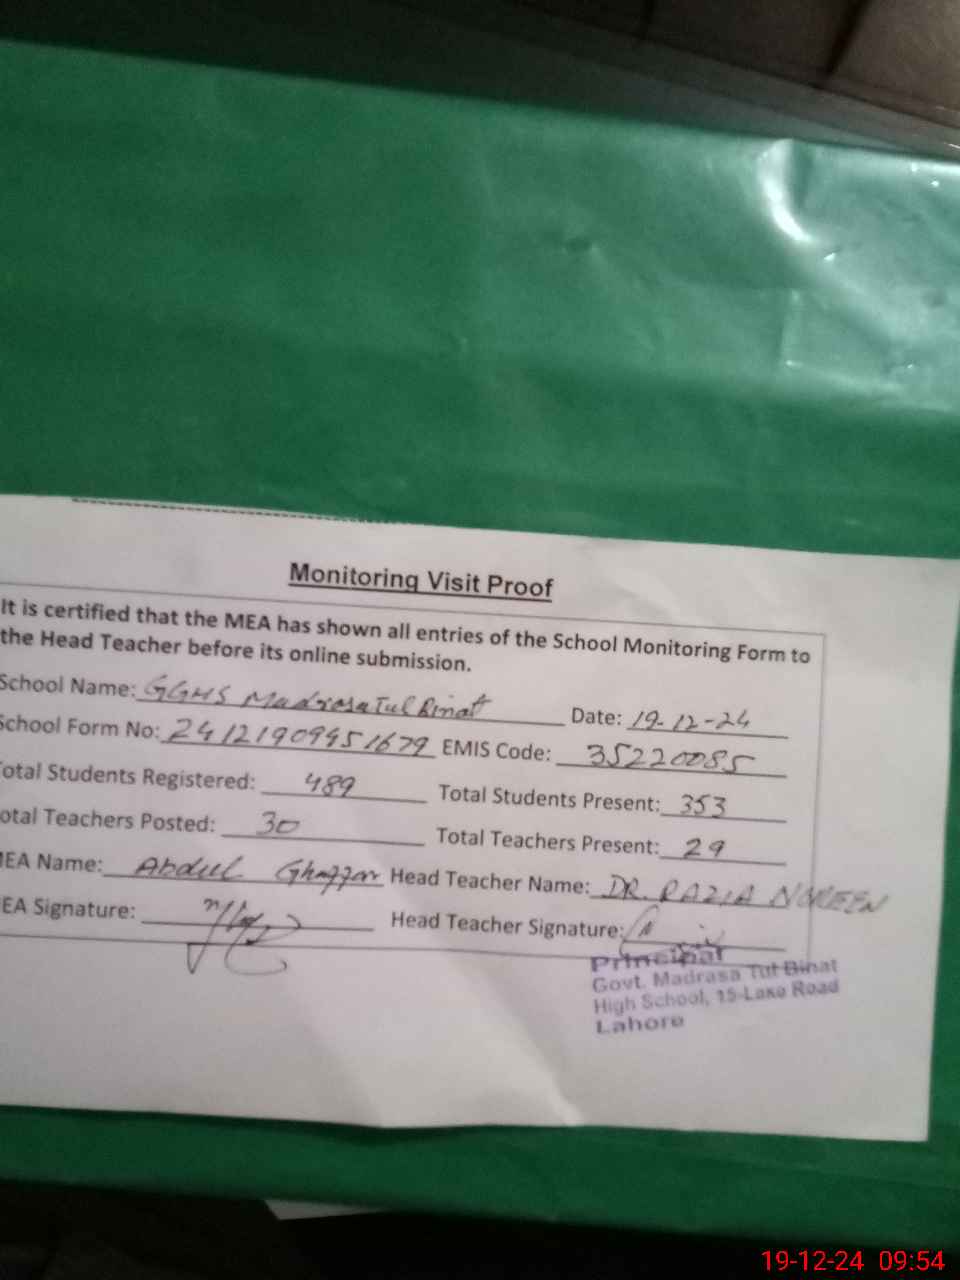 Monitoring Visit Proof
It is certified that the MEA has shown all entries of the School Monitoring Form to
the Head Teacher before its online submission.
School Name: GGHS Madrasa Tul Binat Date: 19-12-24
School Form No: 241219099451679 EMIS Code: 35220085
Total Students Registered: 489 Total Students Present: 353
otal Teachers Posted: 30 Total Teachers Present: 29
MEA Name: Abdul Ghaffar Head Teacher Name: DR. RAZIA NOREEN
EA Signature: Head Teacher Signature:
Principal
Govt. Madrasa Tut Binat
High School, 15-Lake Road
Lahore
19-12-24 09:54